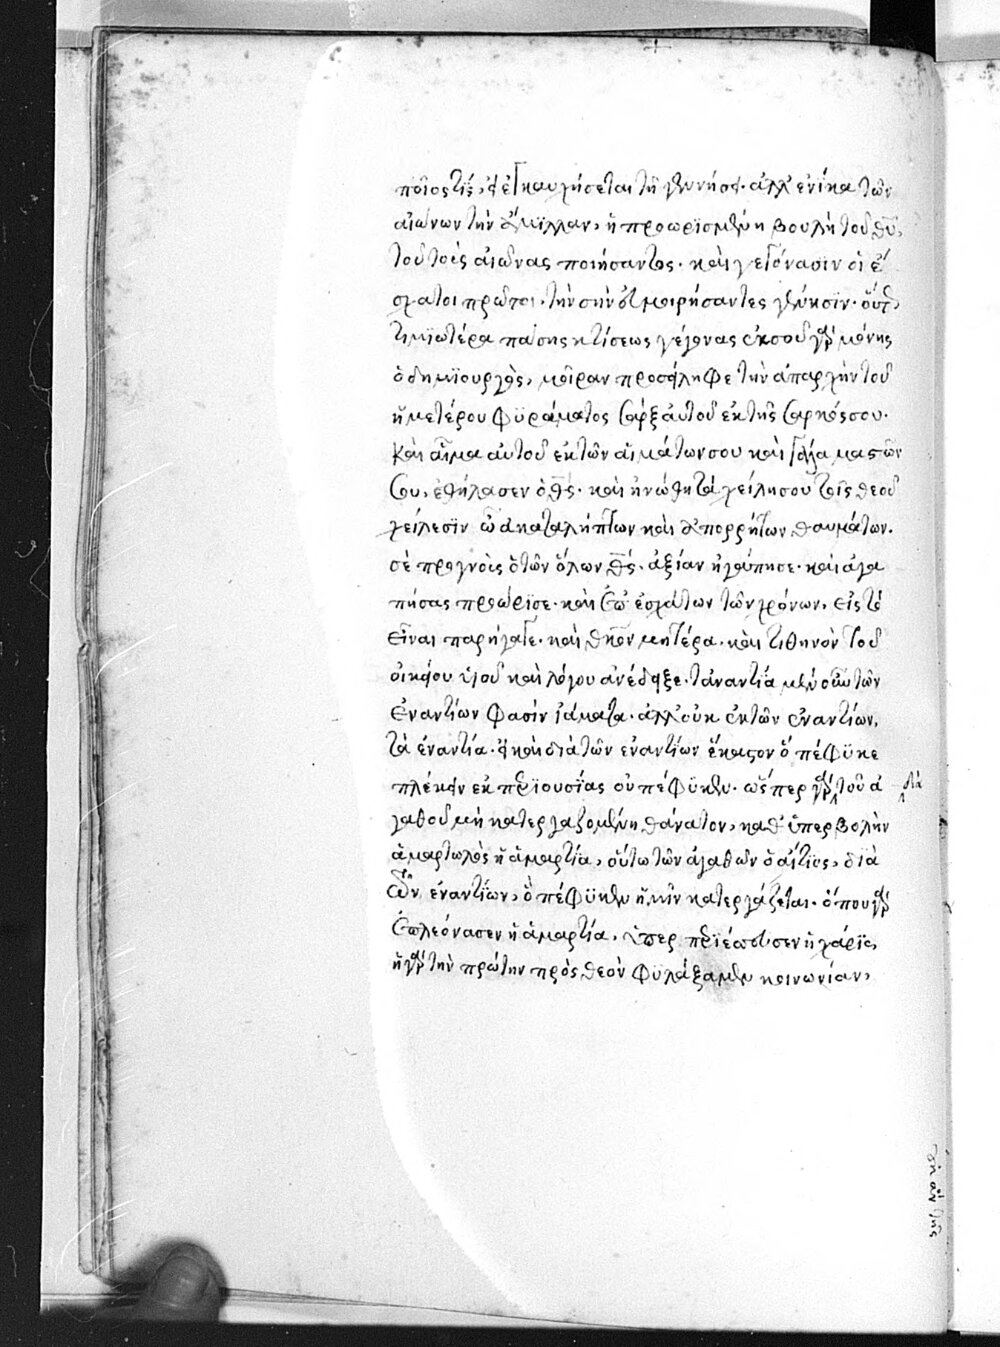 ποῖος τίς, ἐγκαυχήσεται τῇ γεννήσει. ἀλλ' ἐνίκα τῶν
αἰώνων τὴν ἅμϊλλαν, ἡ προωρϊσμένη βουλὴ τοῦ θῦ,
τοῦ τοὺς αἰῶνας ποιήσαντος. καὶ γεγόνασιν οἱ ἔ
σχατοι πρῶτοι. τὴν σὴν μοιρήσαντες γέννησϊν.
τιμϊωτέρα πάσης κτίσεως γέγονας ἐκ σοῦ γὰρ μόνης
ὁ δημϊουργὸς, μοῖραν προσείληφε τὴν ἀπαρχὴν τοῦ
ἡμετέρου φϋράματος σὰρξ αὐτοῦ ἐκ τῆς σαρκός σου.
καὶ αἷμα αὐτοῦ ἐκ τῶν αἱμάτων σου καὶ γάλα μαστῶν
σου, ἐθήλασεν ὁ θς. καὶ ἡνώθη τὰ χείλη σου τοῖς θεοῦ
χείλεσϊν ὢ ἀκαταλήπτων καὶ ἀπορρήτων θαυμάτων.
σὲ προγνοὺς ὁ τῶν ὅλων θς. ἀξίαν ἠγάπησε. καὶ ἀγα
πήσας προώρϊσε. καὶ ἐπ' ἐσχάτων τῶν χρόνων, εἰς τὸ
εἶναι παρήγαγε. καὶ θκον μητέρα. καὶ τιθηνὸν τοῦ
οἰκείου υἱοῦ καὶ λόγου ἀνέδειξε. τἀναντία μὲν οὖν τῶν
ἐναντίων φασὶν ἰάματα. ἀλλ' οὐκ ἐκ τῶν ἐναντίων,
τὰ ἐναντία. εἰ καὶ διὰ τῶν ἐναντίων ἕκαστον ὃ πέφϋκε
πλέκειν ἐκ περϊουσίας οὐ πέφϋκεν. ὥσπερ γὰρ τοῦ ἀ διὰ
γαθοῦ μὴ κατεργαζομένη θάνατον, καθ' ὑπερβολὴν
ἁμαρτωλὸς ἡ ἁμαρτία, οὕτω τῶν ἀγαθῶν ὁ αἴτϊος, διὰ
τῶν ἐναντίων, ὃ πέφϋκεν ἡμῖν κατεργάζεται. ὅπου γὰρ
ἐπλεόνασεν ἡ ἁμαρτία, ὑπερεπερίσσευσεν ἡ χάρϊς,
ἡ γὰρ τὴν πρώτην πρὸς θεὸν φϋλάξαμεν κοινωνίαν,